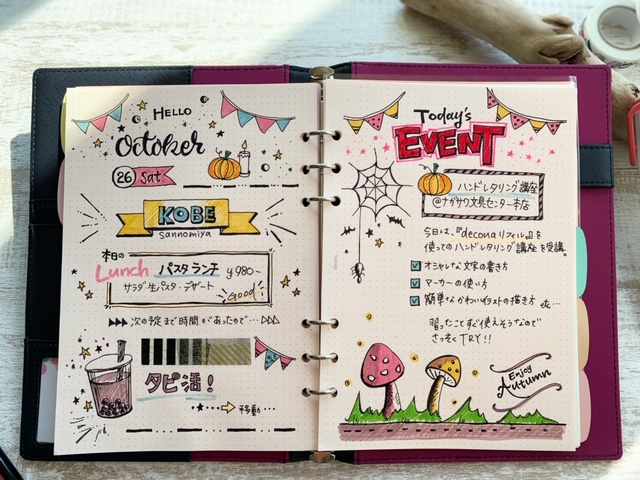 HELLO
October
26 Sat.
KOBE
sannomiya
本日の
Lunch パスタランチ ¥980-
サラダ・生パスタ・デザート
Good
次の予定まで時間があったので…
タピ活!
移動…
Today's
EVENT
ハンドレタリング講座
@ナガサワ文具センター本店
今日は、『decoruaリフィル』を
使ってのハンドレタリング講座を受講。
オシャレな文字の書き方
マーカーの使い方
簡単なかわいいイラストの描き方 etc…
習ったことすぐ使えそうなので
さっそくTRY!!
Enjoy
Autumn